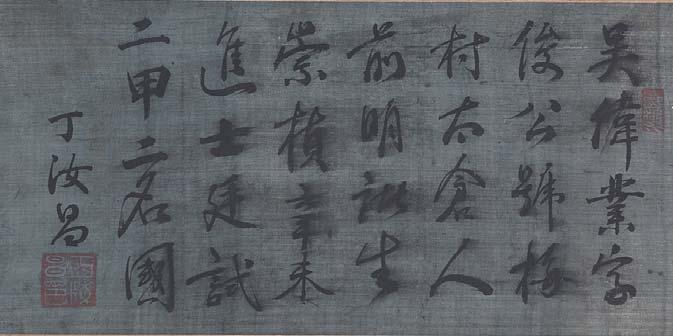 吳偉業字
俊公號梅
村太倉人
前明諸生
崇禎辛未
進士廷試
二甲二名國
丁汝昌